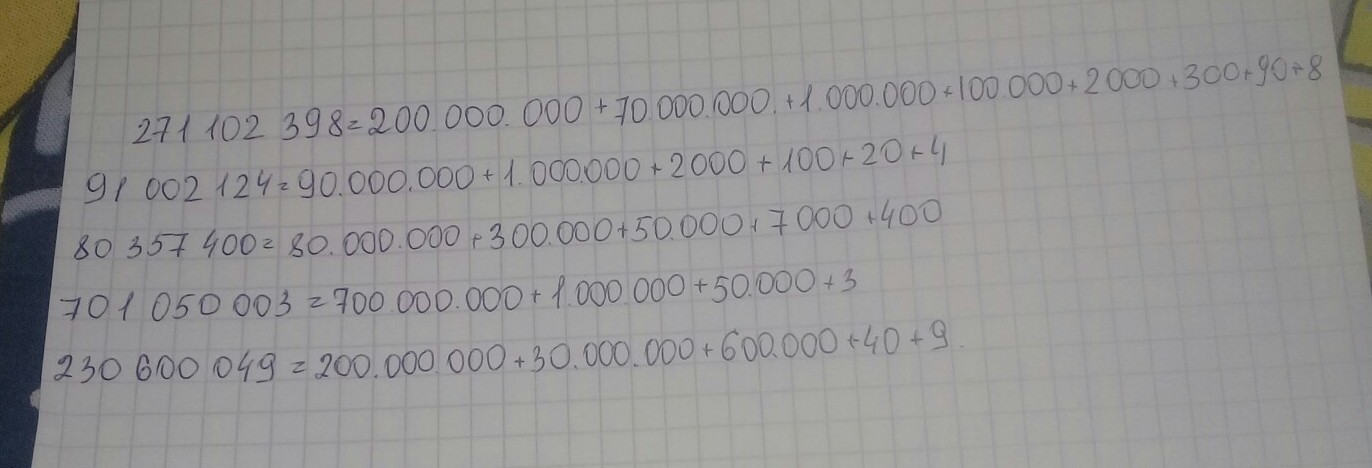 271 102 398=200.000.000+70.000.000.+1.000.000+100.000+2000+300+90+8
91 002 124=90.000.000+1.000.000+2000+100+20+4
80 357 400=80.000.000+300.000+50.000+7000+400
701 050 003=700 000.000+1.000 000+50.000+3
230 600 049=200.000.000+30.000.000+600.000+40+9.